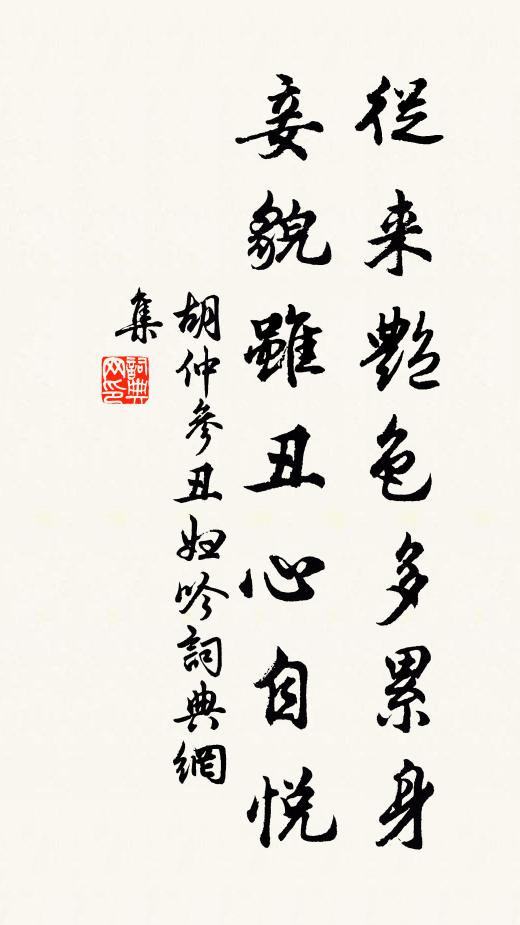 從来艷色多累身
妾貌雖丑心自悦
胡仲參丑妇吟詞典網
集
詞典
网印